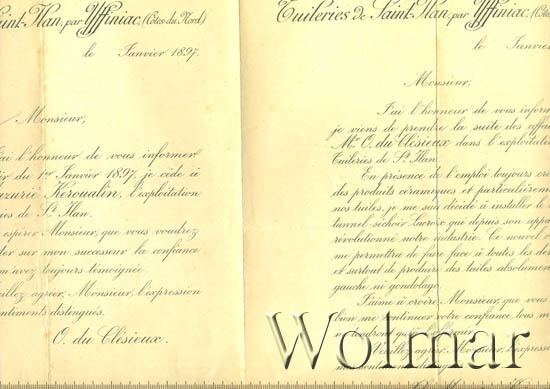 Saint-Ilan, par Yffiniac, (Côtes du Nord)
le Janvier 1897.
Monsieur,
J'ai l'honneur de vous informer
du 1er Janvier 1897, je cède à
Kéroualin, l'exploitation
de St Ilan.
espérer Monsieur, que vous voudrez
sur mon successeur la confiance
m'avez toujours témoignée.
agréer, Monsieur, l'expression
sentiments distingués.
O. du Clésieux.
Tuileries de Saint-Ilan, par Yffiniac, (Côtes
le Janvier
Monsieur,
J'ai l'honneur de vous inform
je viens de prendre la suite des affai
Mr O. du Clésieux dans l'exploitati
Tuileries de St Ilan.
En présence de l'emploi toujours cro
des produits céramiques et particulièrem
nos tuiles, je me suis décidé à installer le
tunnel-séchoir Lacroix qui depuis son appa
révolutionne notre industrie. Ce nouvel
me permettra de faire face à toutes les de
et surtout de produire des tuiles absolumen
gauche ni gondolage.
J'aime à croire, Monsieur, que vous
bien me continuer votre confiance, tous m
ne tendront qu'à
Veuillez agréer, Monsieur, l'express
Wolmar